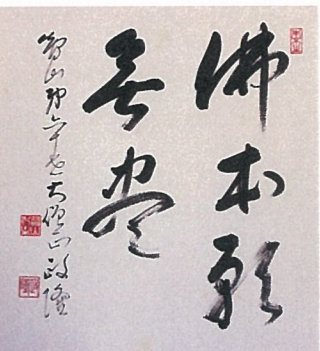 佛本願
無盡
智山第六十世大僧正政隆